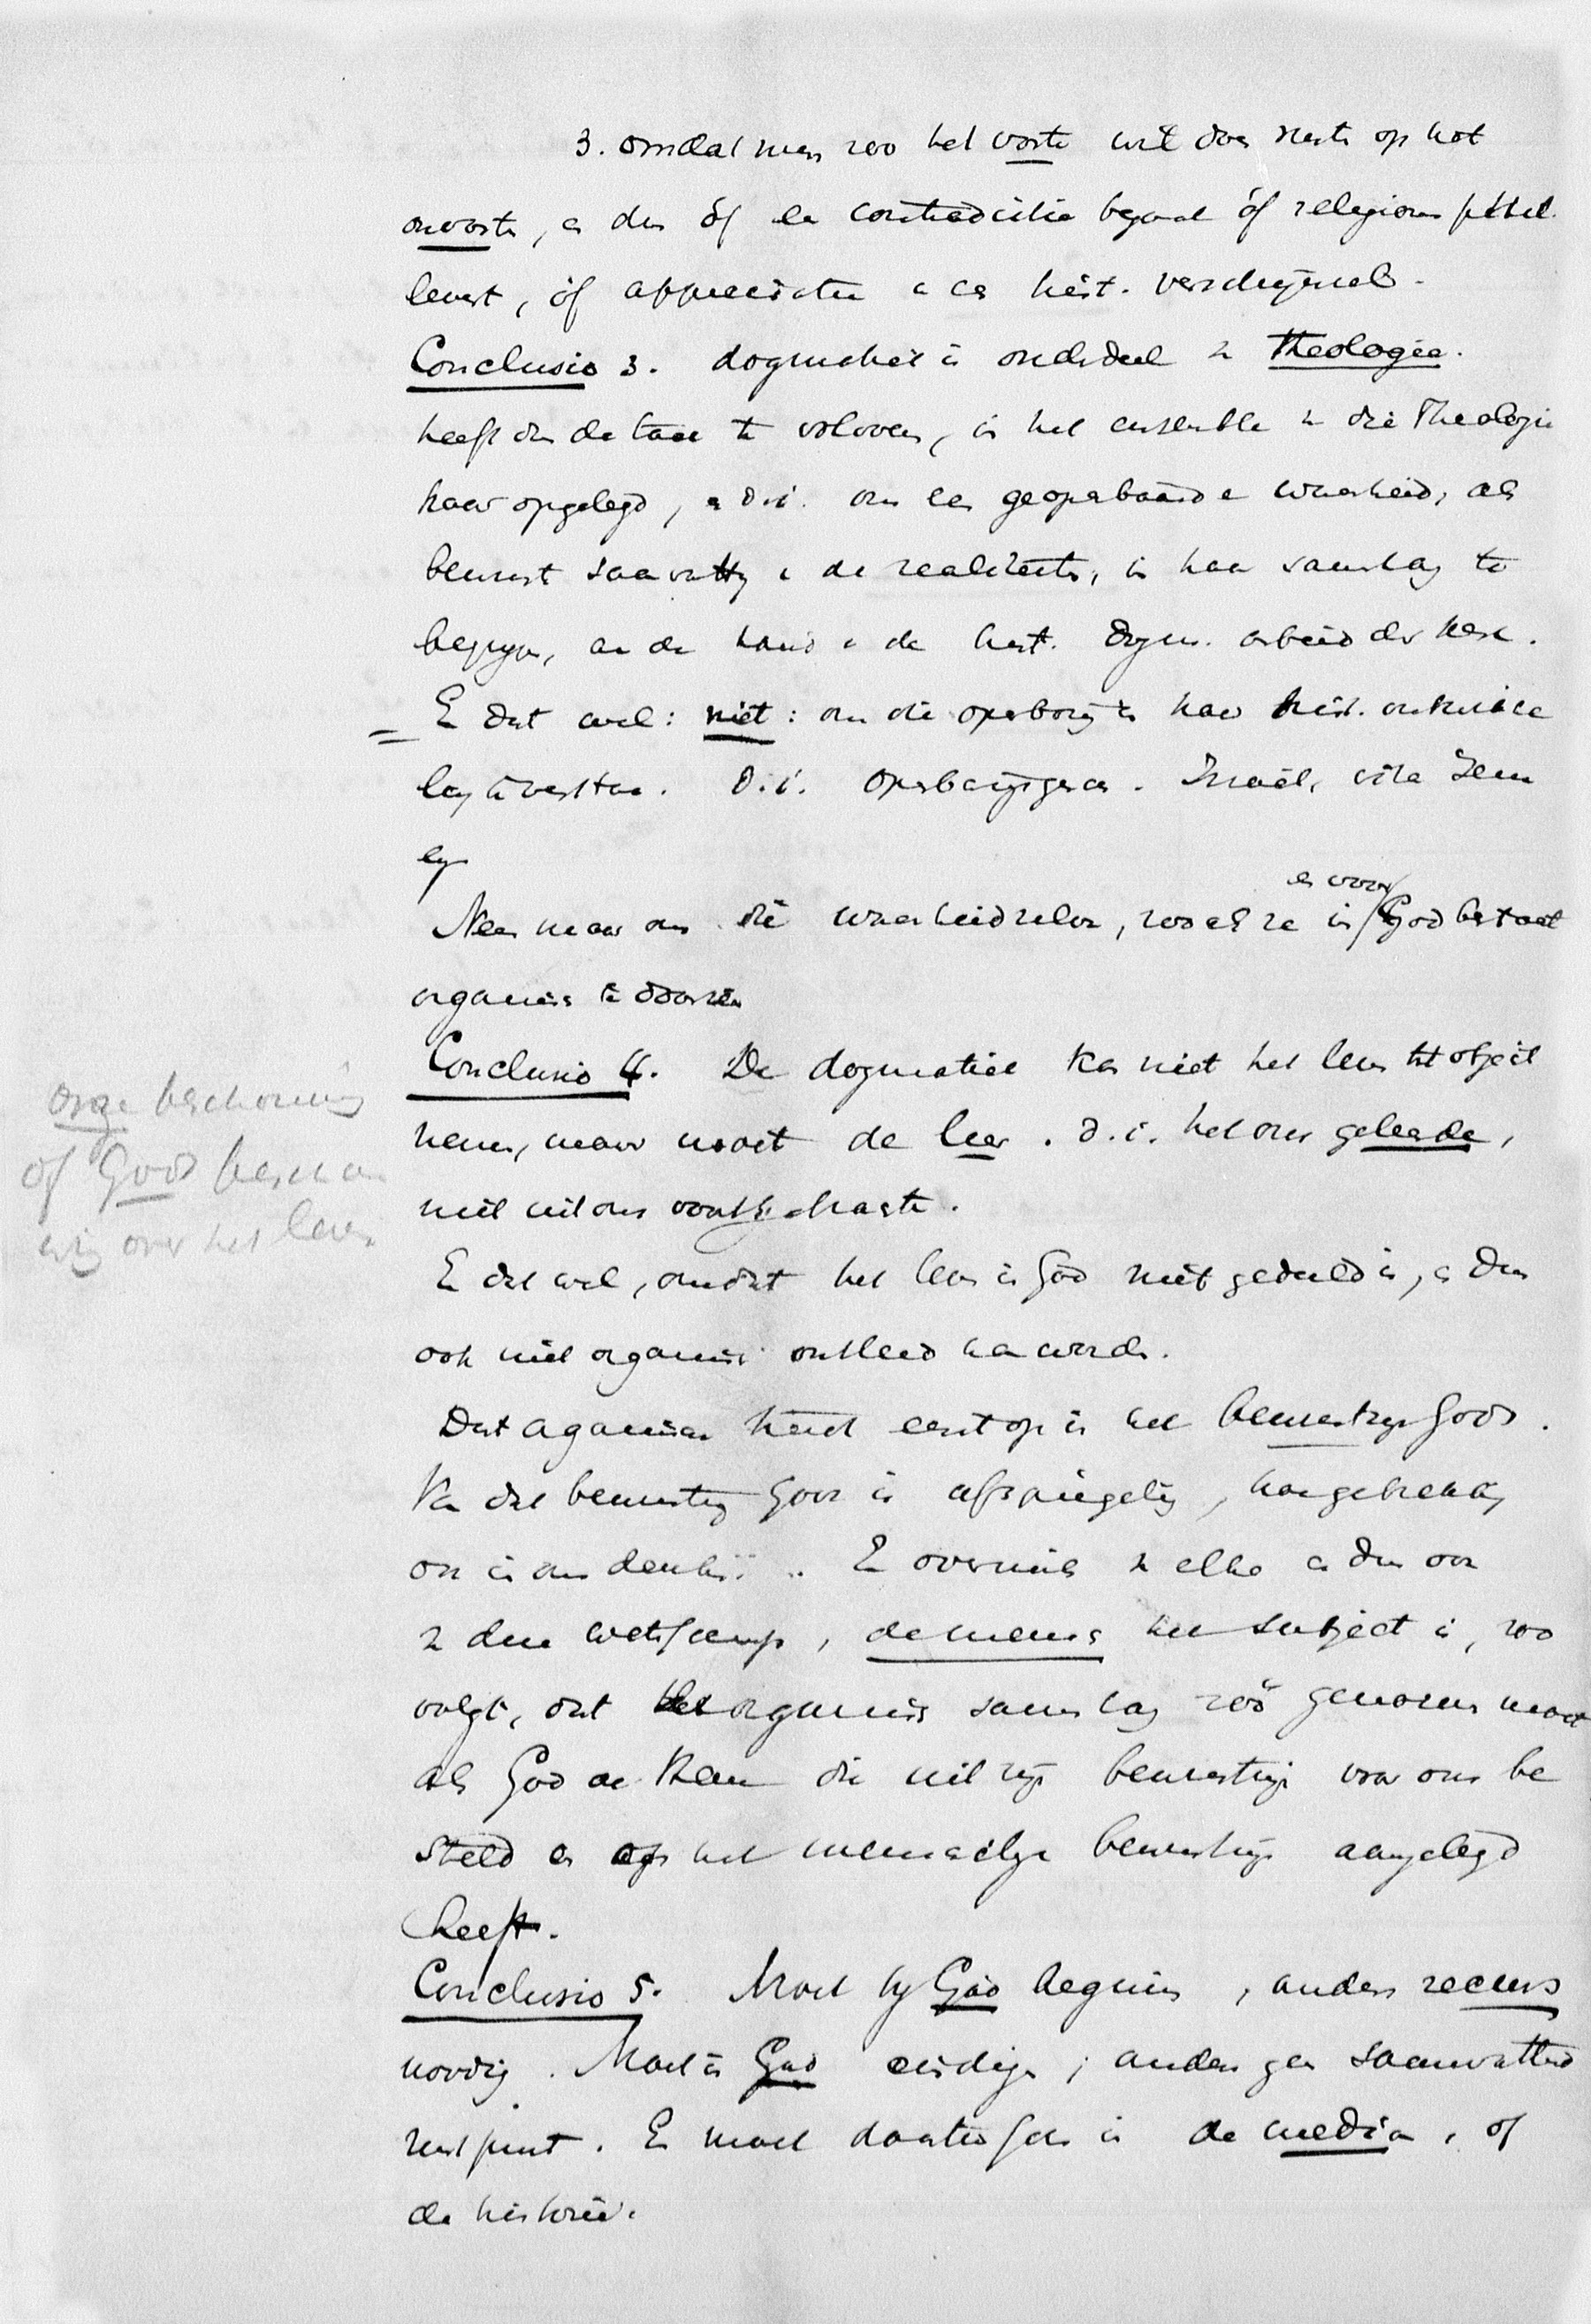 3. omdat men zoo het vaste wil doen rusten op het
onvaste, en dus óf een contradictie begaat óf religions phil.
levert, óf appreciatie v een hist. verschijnsel.
Conclusio 3. dogmatiek is onderdeel v Theologie.
heeft dus de taak te voldoen, in het ensemble v die Theologie
haar opgelegd, en d.i. om de geopenbaarde waarheid, als
bewust saamvatting v de realiteiten, in haar samenhang te
begrijpen, aan de hand v de hist. dogm. arbeid der kerk.
En dat wel: niet: om die openbaring in haar hist. ontwikke
ling te verstaan. D.i. openbaringsgesch. Israël, vita Jesu
Neen maar om die waarheid zelve, zooals ze in God bestaat
en voor
organisch te doorzien
Conclusio 4. De dogmatiek kan niet het leven tot object
nemen, maar moet de leer. d.i. het ons geleerde,
niet uit ons voortgebrachte.
En dat wel, omdat het leven in God niet gedeeld is, en dus
ook niet organisch ontleed kan worden.
Dat organisme treedt eerst op in het bewustzijn Gods.
Van dat bewustzijn Gods is afspiegeling,
ons in ons denken. En overmits v elke en dus ook
v deze wetenschap, de mensch het subject is, zoo
volgt, dat het organisch samenhang zóó genomen moet
als God de Heer die uit zijn bewustzijn voor ons be
steld en op het menschelijk bewustzijn aangelegd
heeft.
Conclusio 5. Moet bij God beginnen, anders recurs
noodig. Moet in God eindigen; anders geen saamvattend
rustpunt. En moet daartusschen in de media, of
de historie.
onze beschouwing
of Gods beschou
wing over het leven